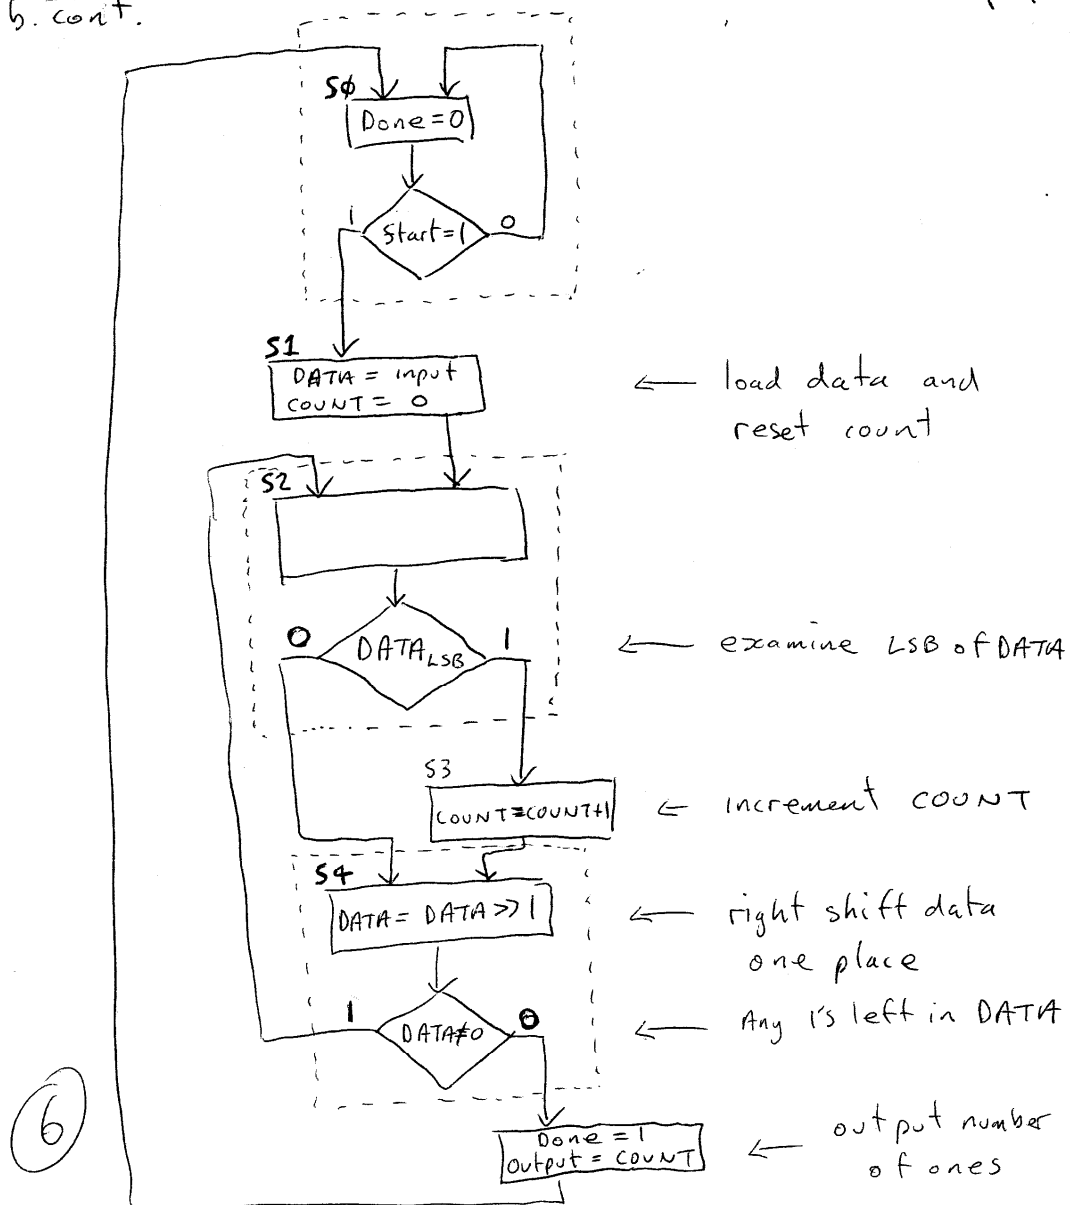 b. cont.
SØ
Done=0
1
Start=1
0
S1
DATA = input
COUNT = 0
← load data and
reset count
S2
0
DATA LSB
1
← examine LSB of DATA
S3
COUNT=COUNT+1
← increment COUNT
S4
DATA = DATA >> 1
← right shift data
one place
1
DATA≠0
0
← Any 1's left in DATA
6
Done = 1
Output = COUNT
← output number
of ones